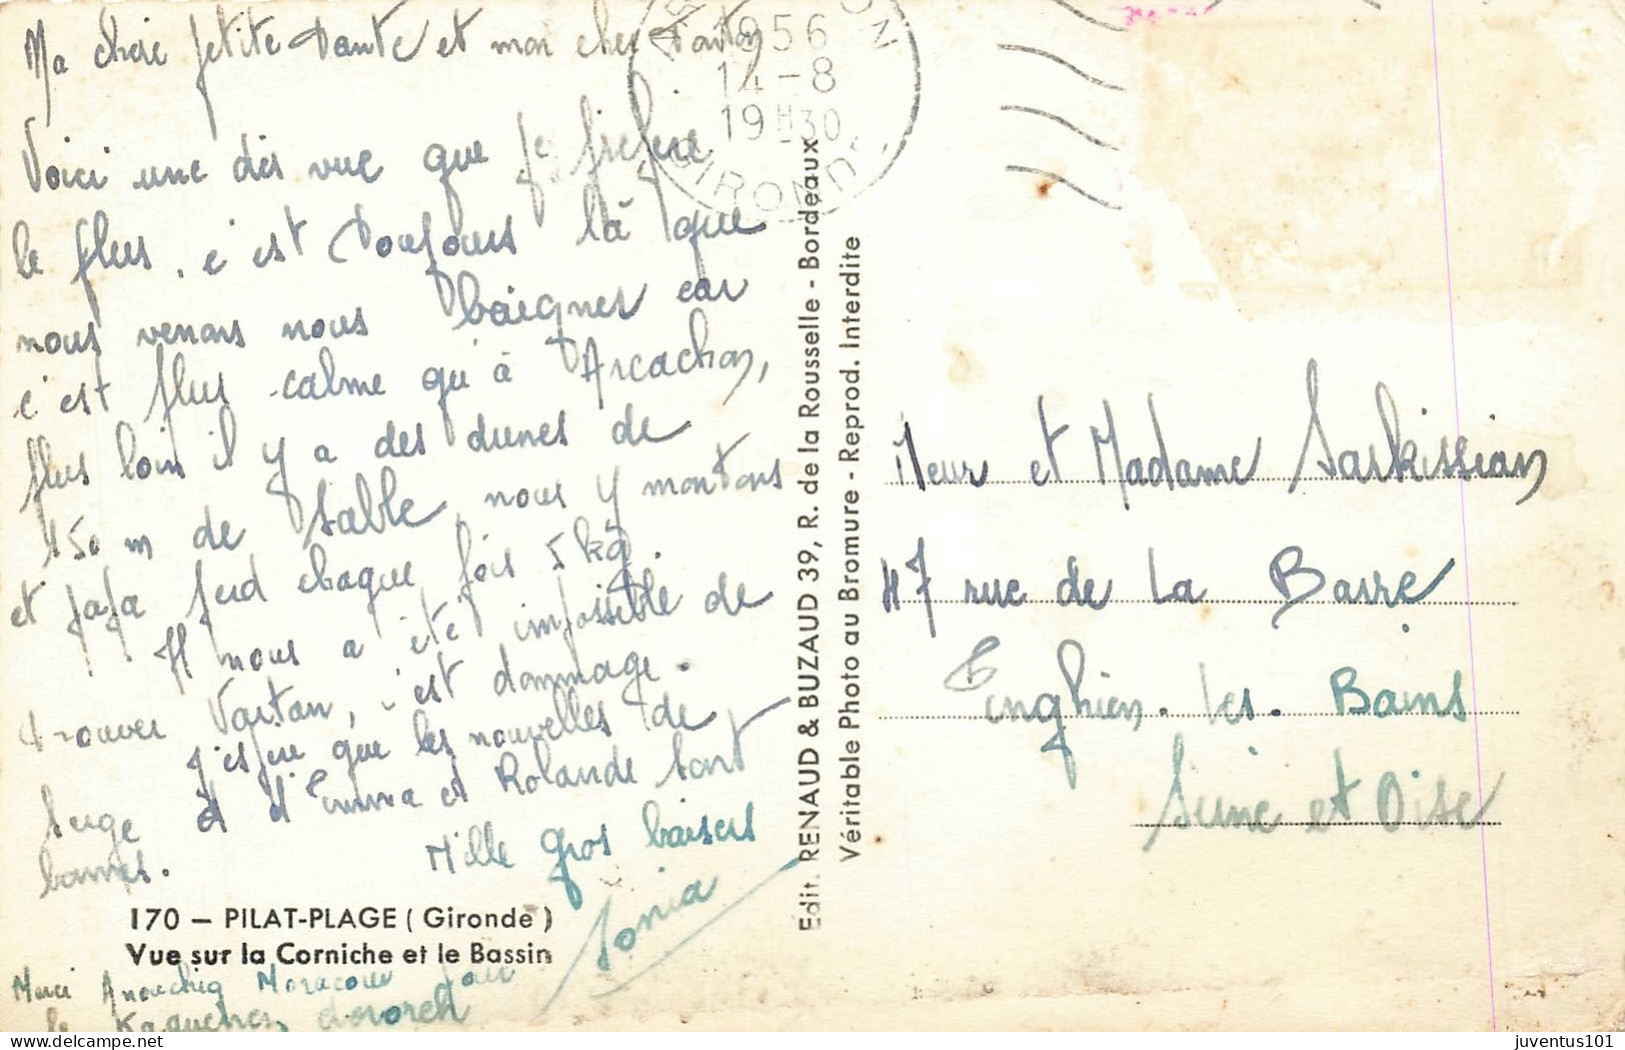 Ma chère petite Tante et mon cher Tonton
Voici une des vue que je préfère
le plus, c'est toujours là que
nous venons nous baigner car
c'est plus calme qu'à Arcachon,
plus loin il y a des dunes de
150 m de sable, nous y montons
et papa perd chaque fois 5 kg.
Il nous a été impossible de
trouver Vartan, c'est dommage.
J'espère que les nouvelles de
Serge et d'Emma et Rolande sont
bonnes.
Mille gros baisers
Sonia
170 – PILAT-PLAGE ( Gironde )
Vue sur la Corniche et le Bassin
Merci Anouchig Moracour pour
le
1956
14-8
19H30
GIRONDE
Edit. RENAUD & BUZAUD 39, R. de la Rousselle - Bordeaux
Véritable Photo au Bromure - Reprod. Interdite
Mieur et Madame Sarkissian
47 rue de La Barre
Enghien. les. Bains
Seine et Oise
juventus101